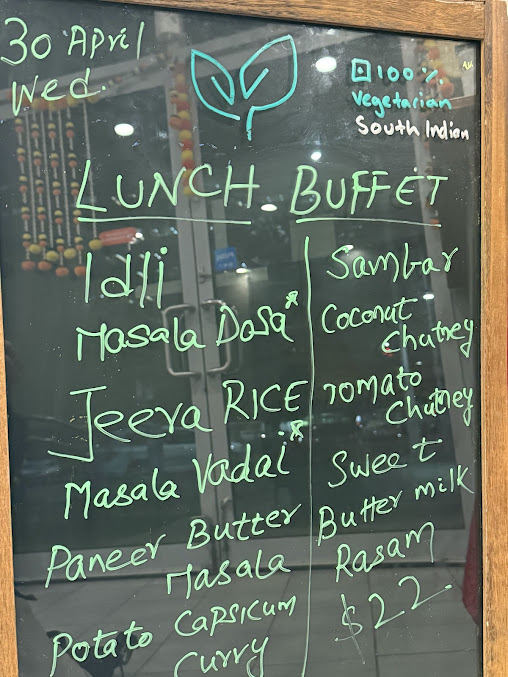 30 April
Wed.
100%
Vegetarian
South Indian
LUNCH BUFFET
Idli
Masala Dosa*
Jeera RICE
Masala Vadai*
Paneer Butter
Masala
Potato CAPSICUM
Curry
Sambar
Coconut
Chutney
Tomato
Chutney
Sweet
Butter milk
Rasam
$22.